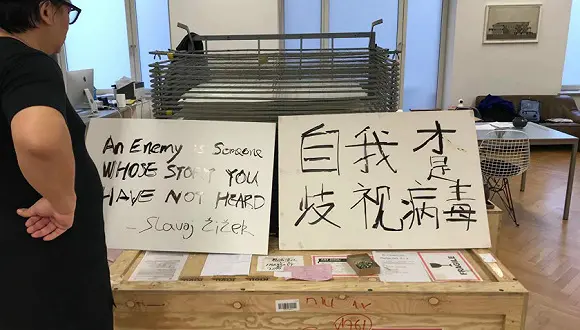 An Enemy is Someone
WHOSE STORY YOU
HAVE NOT HEARD
- Slavoj Žižek
自我才是
歧视病毒
FRAGILE
1761